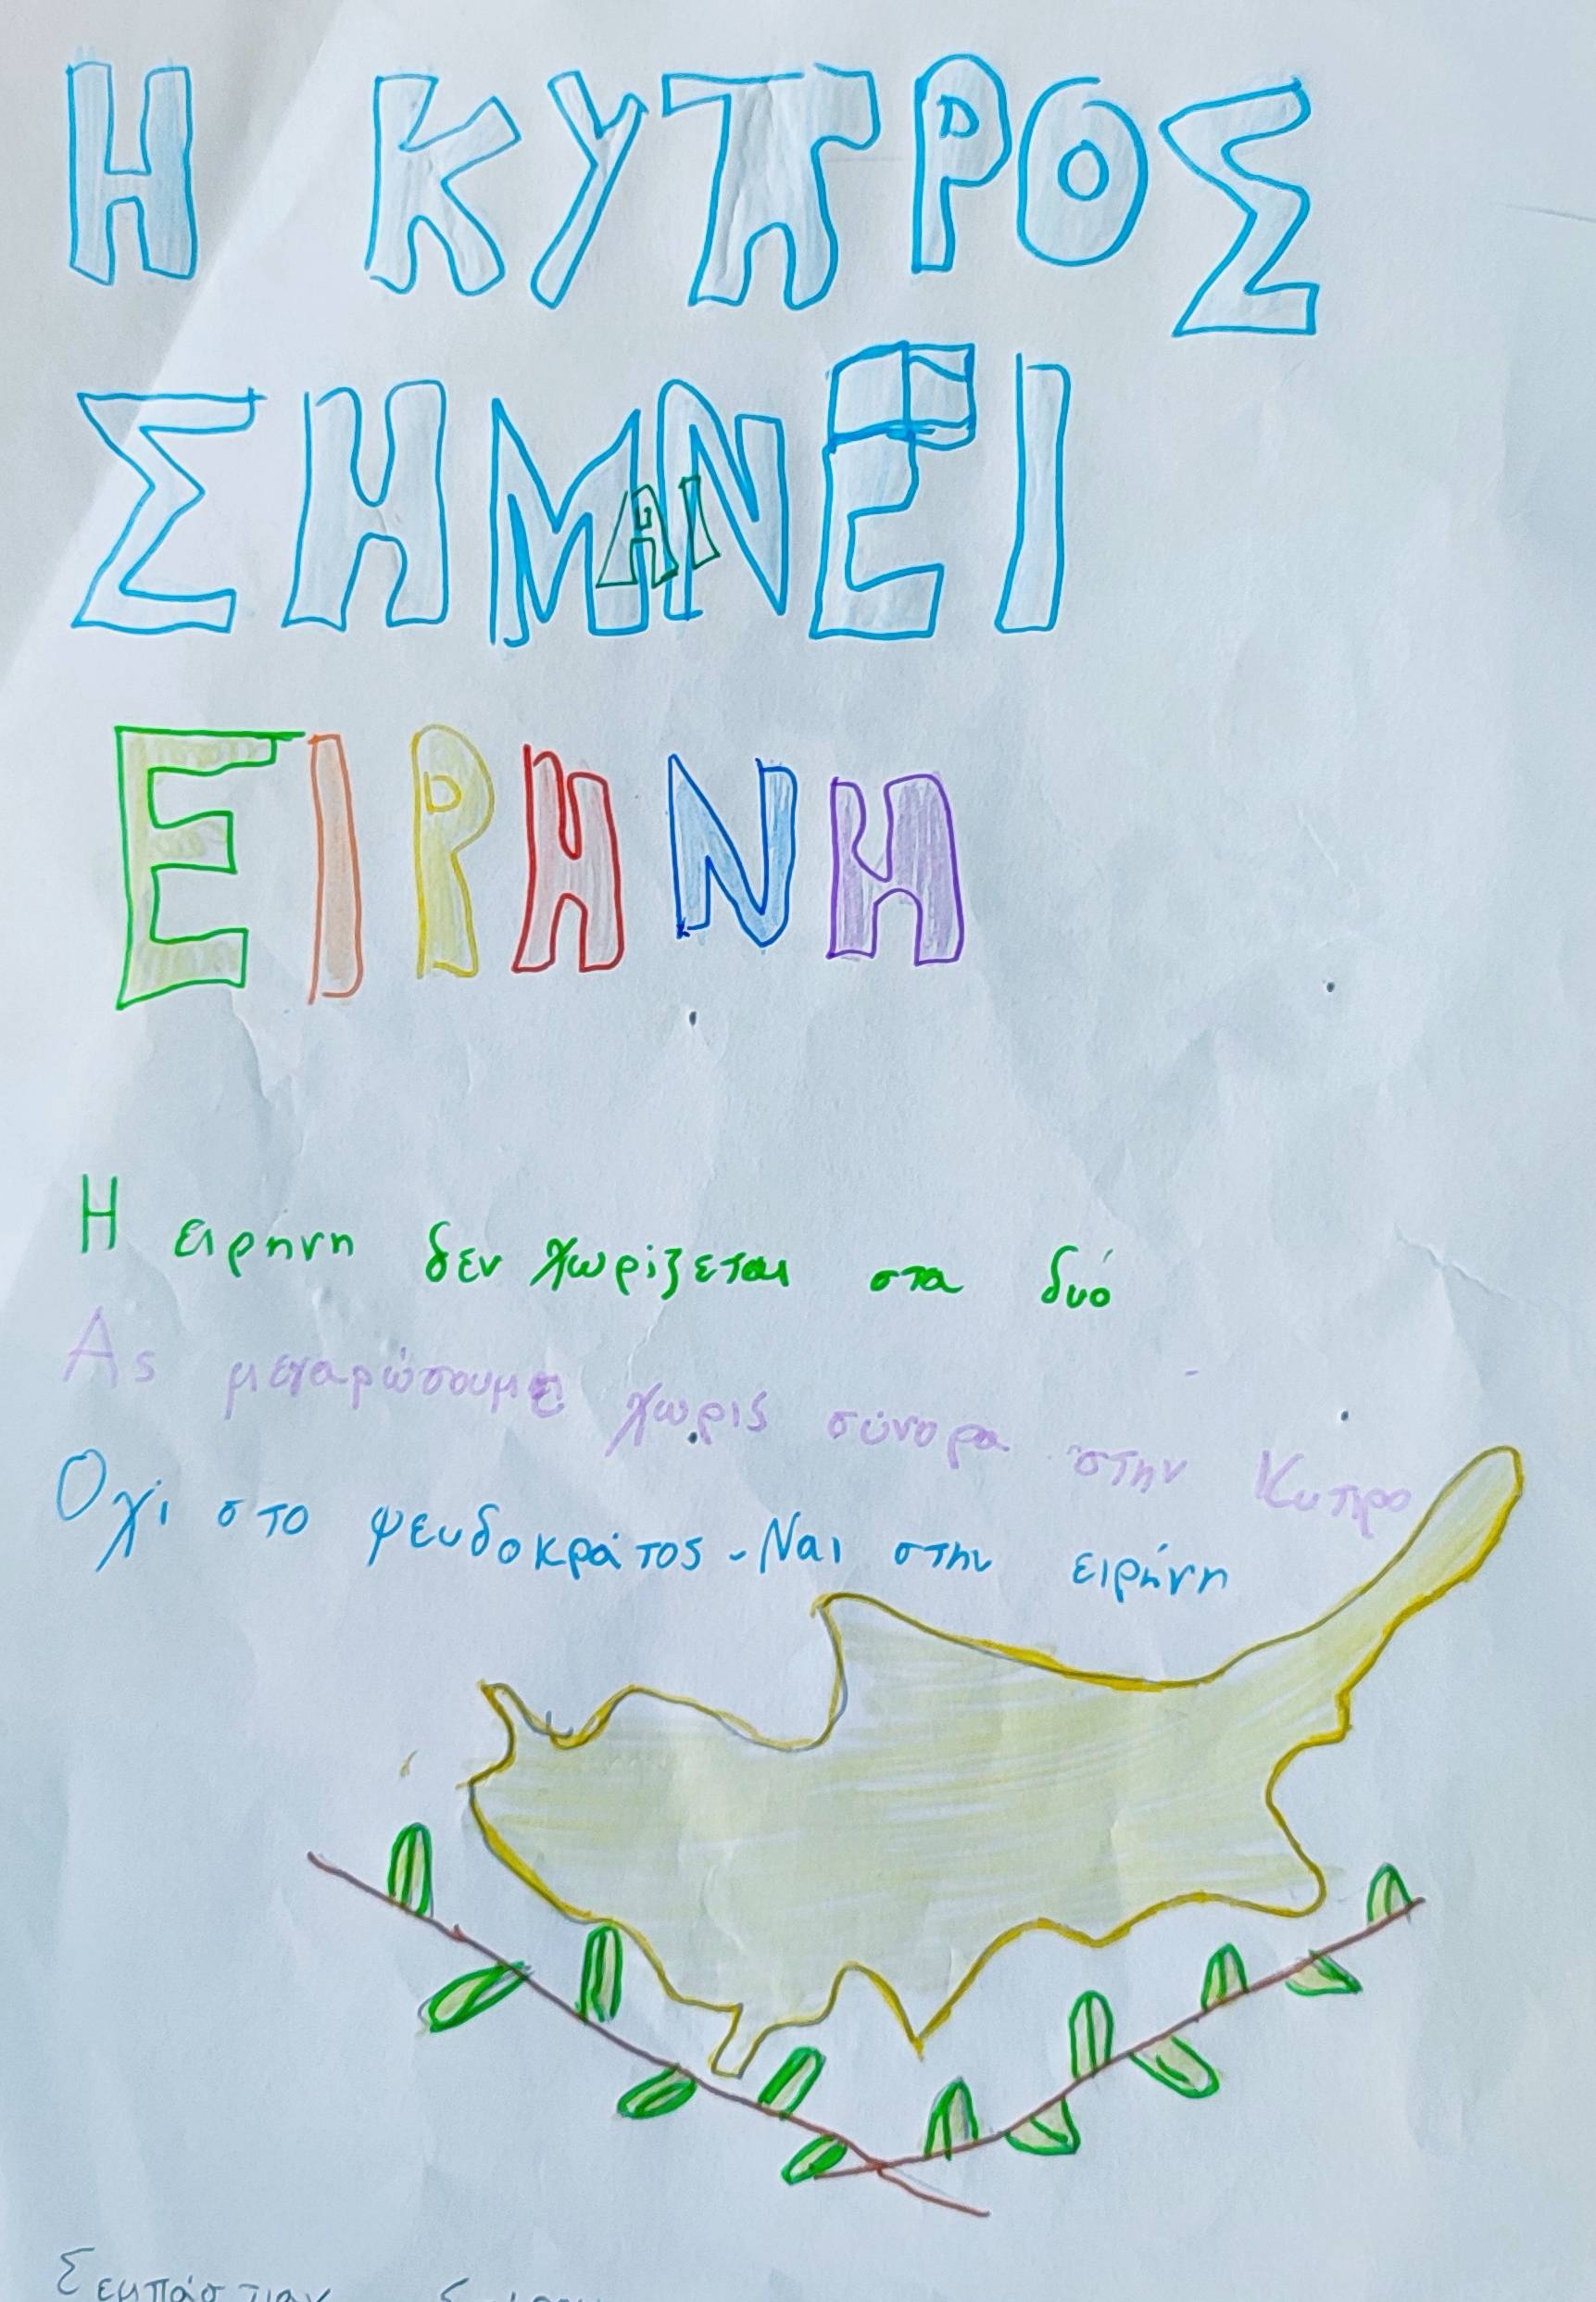 Η ΚΥΠΡΟΣ
ΣΗΜΑΙΝΕΙ
ΕΙΡΗΝΗ
Η ειρηνη δεν χωρίζεται στα δυό
Ας μεγαρώσουμε χωρις σύνορα στην Κυπρο
Οχι στο ψευδοκράτος - Ναι στην ειρήνη
Σεμπάστιαν